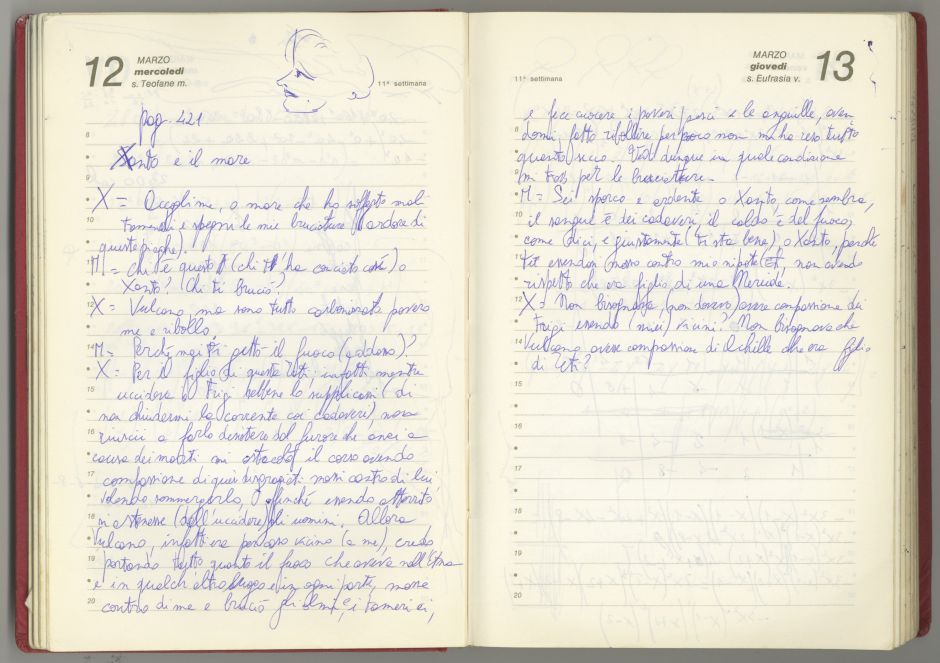 12
MARZO
mercoledì
s. Teofane m.
11ª settimana
pag. 421
Xanto e il mare
X = Accoglimi, o mare che ho sofferto mol-
tamente e spegni le mie bruciature (l'ardore di
queste piaghe).
M = Chi è questo (chi ti ha conciato così) o
Xanto? Chi ti bruciò?
X = Vulcano, ma sono tutto carbonizzato povero
me e ribollo.
M = Perché mai ti gettò il fuoco (addosso)?
X = Per il figlio di questa Teti: infatti mentre
uccideva i Frigi sebbene lo supplicassi (di
non chiudermi la corrente coi cadaveri) non
riuscii a farlo desistere dal furore che anzi a
causa dei morti mi ostacolò il corso avendo
compassione di quei disgraziati mossi contro di lui
volendo sommergerlo, affinché essendo atterrito
si astenesse (dall'uccidere) gli uomini. Allora
Vulcano, infatti era per caso vicino (a me), credo
portando tutto quanto il fuoco che aveva nell'Etna
e in qualch'altro luogo e in ogni parte, mosse
contro di me e bruciò gli olmi, e i tamerici,
11ª settimana
MARZO
giovedì
s. Eufrasia v.
13
e fece cuocere i poveri pesci e le anguille, aven-
domi fatto ribollire per poco non mi ha reso tutto
quanto secco. Vedi dunque in quale condizione
mi trovo per le bruciature.
M = Sei sporco e ardente o Xanto, come sembra,
il sangue è dei cadaveri, il caldo è del fuoco,
come dici, e giustamente (ti sta bene), o Xanto, perché
ti essendo mosso contro mio nipote, non avendo
rispetto che era figlio di una Nereide.
X = Non bisognava, (non dovevo) avere compassione dei
Frigi essendo (miei) vicini? Non bisognava che
Vulcano avesse compassione di Achille che era figlio
di Teti?
8
9
10
11
12
13
14
15
16
17
18
19
20